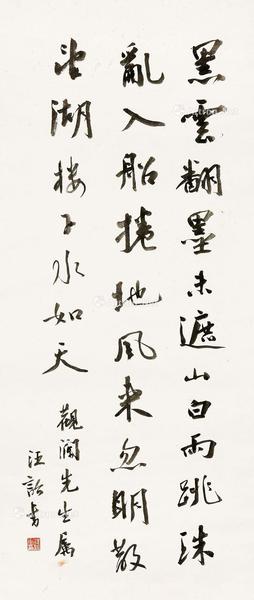 黑雲翻墨未遮山白雨跳珠
亂入船捲地風來忽明散
望湖樓下水如天
觀瀾先生屬
汪詒書